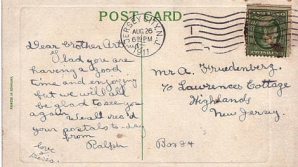 POST CARD
JERSEY CITY, N.J.
AUG 26
6 PM
1911
Dear Brother Art
Glad you are
having a good
time and enjoying
but we will all
be glad to see you
again. We all rec'd
your postals to-day
from
Ralph
Love
Mr A. Freudenberg.
To Lawrence Cottage
Highlands
New Jersey.
Box 84